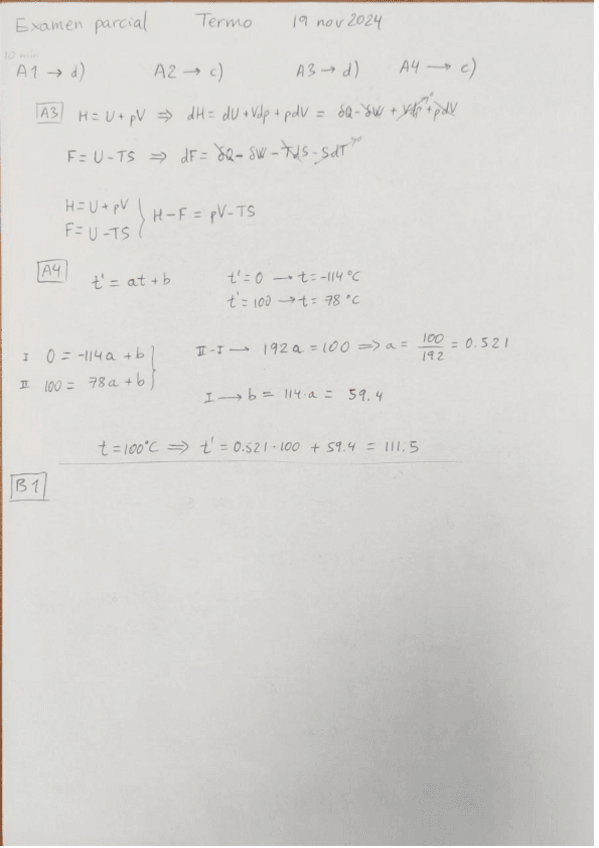 Examen parcial Termo 19 nov 2024
10 min
A1 → d) A2 → c) A3 → d) A4 → c)
A3 H = U + pV ⇒ dH = dU + Vdp + pdV = δQ - δW + Vdp + pdV
F = U - TS ⇒ dF = δQ - δW - TdS - SdT
H = U + pV
F = U - TS } H - F = pV - TS
A4 t' = at + b t' = 0 → t = -114 °C
t' = 100 → t = 78 °C
I 0 = -114a + b II - I → 192a = 100 ⇒ a = 100/192 = 0.521
II 100 = 78a + b }
I → b = 114·a = 59.4
t = 100°C ⇒ t' = 0.521·100 + 59.4 = 111.5
B1